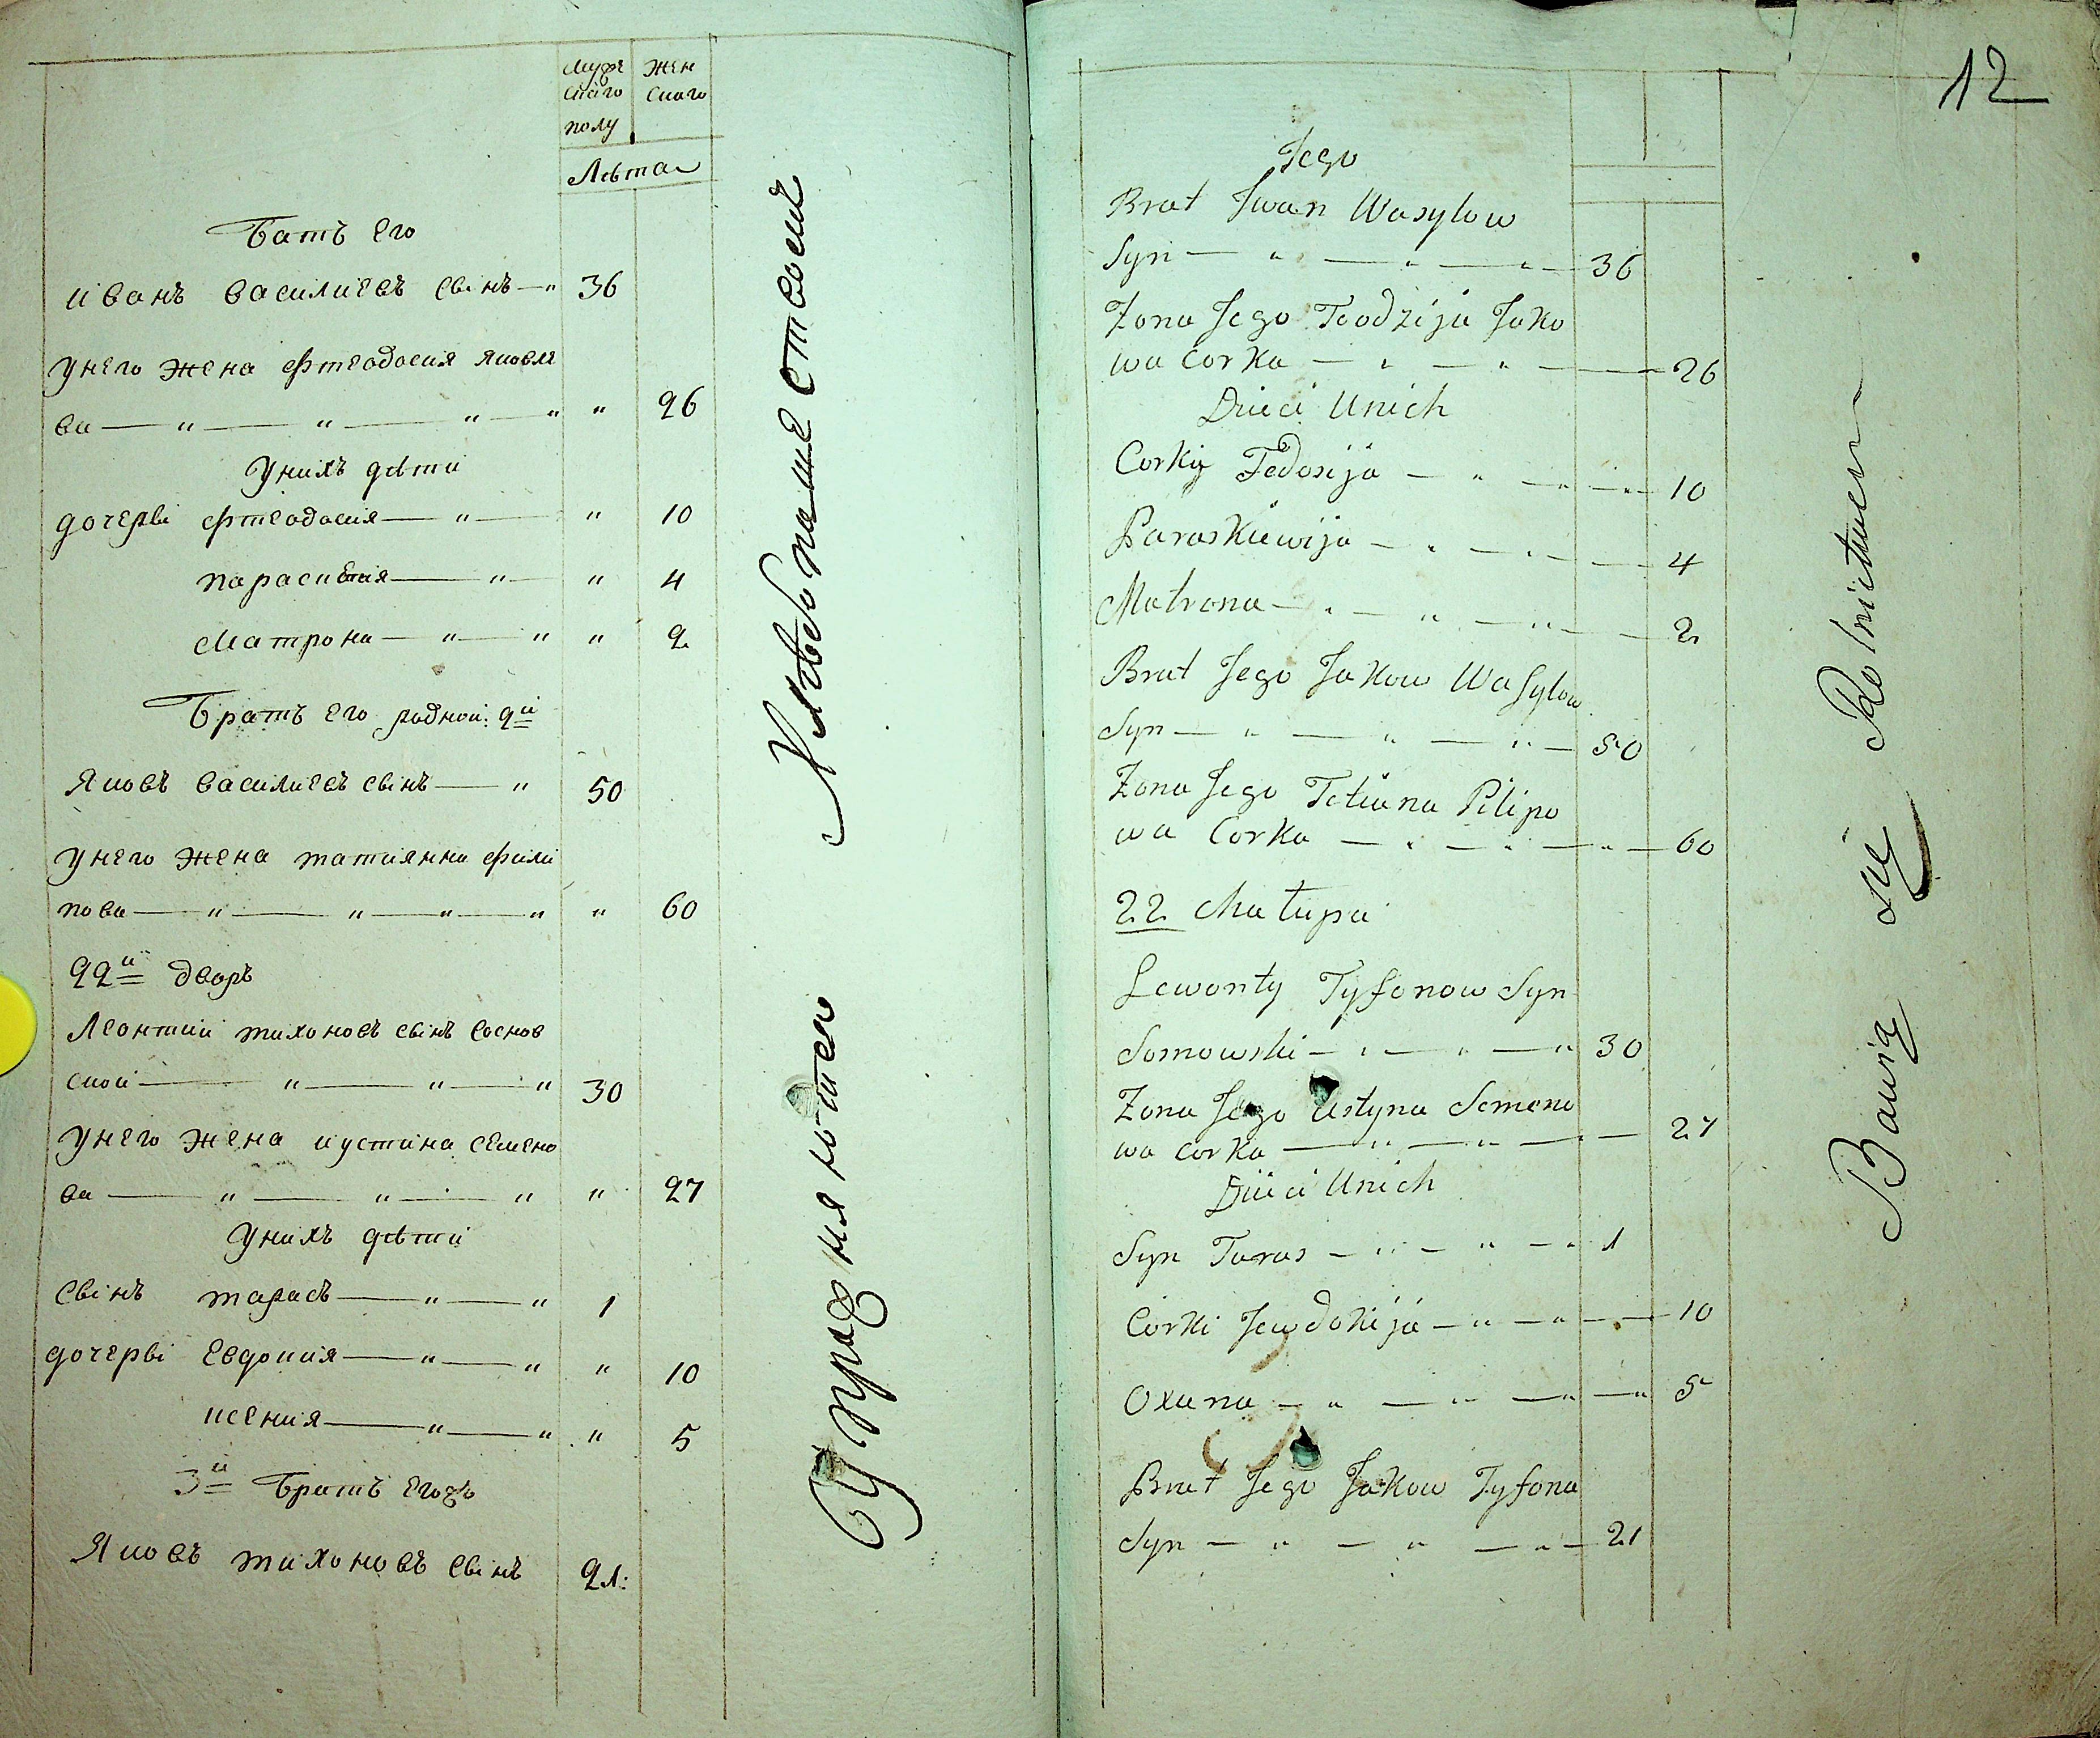 Муже Жен
скаго скаго
полу
Лѣта
Батъ Его
иванъ василиевъ свінъ — " 36
унего жена фтеодосия яковле
ва — " — " — " — " " 26
унихъ дѣти
дочерві фтеодосия — " — " 10
параскѣвия — " — " 4
матрона — " — " " 2
Братъ Его родной: 2й
Яковъ василиевъ свінъ — " 50
унего жена татиянна фили
пова — " — " — " — " " 60
22й дворъ
Леонтий тихоновъ свінъ соснов
ской — " — " — " 30
унего жена иустина семено
ва — " — " — " " 27
унихъ дѣти
свінъ тарасъ — " — " 1
дочерві Евдокия — " — " " 10
ксения — " — " " 5
3й Братъ Его
Яковъ тихоновъ свінъ 21:
Упражняютсю Хлѣбопашеством
12
Jego
Brat Jwan Wasylow
Syn — " — " — " — 36
Zona Jego Teodzija Jako
wa Corka — " — " — 26
Dzieci Unich
Corky Fedosija — " — " — 10
Paraskiewija — " — " — 4
Matrona — " — " — " — 2
Brat Jego Jakow Wasylow
Syn — " — " — " — 50
Zona Jego Tetiana Pilipo
wa Corka — " — " — " — 60
22 Chałupa
Lewonty Tyfonow Syn
Sosnowski — " — " — " 30
Zona Jego Ustyna Semeno
wa Corka — " — " — " — 27
Dzieci Unich
Syn Taras — " — " — " 1
Corki Jewdokija — " — " — 10
Oxana — " — " — " — " 5
Brat Jego Jakow Tyfona
Syn — " — " — " — 21
Bawią się Rolnictwem